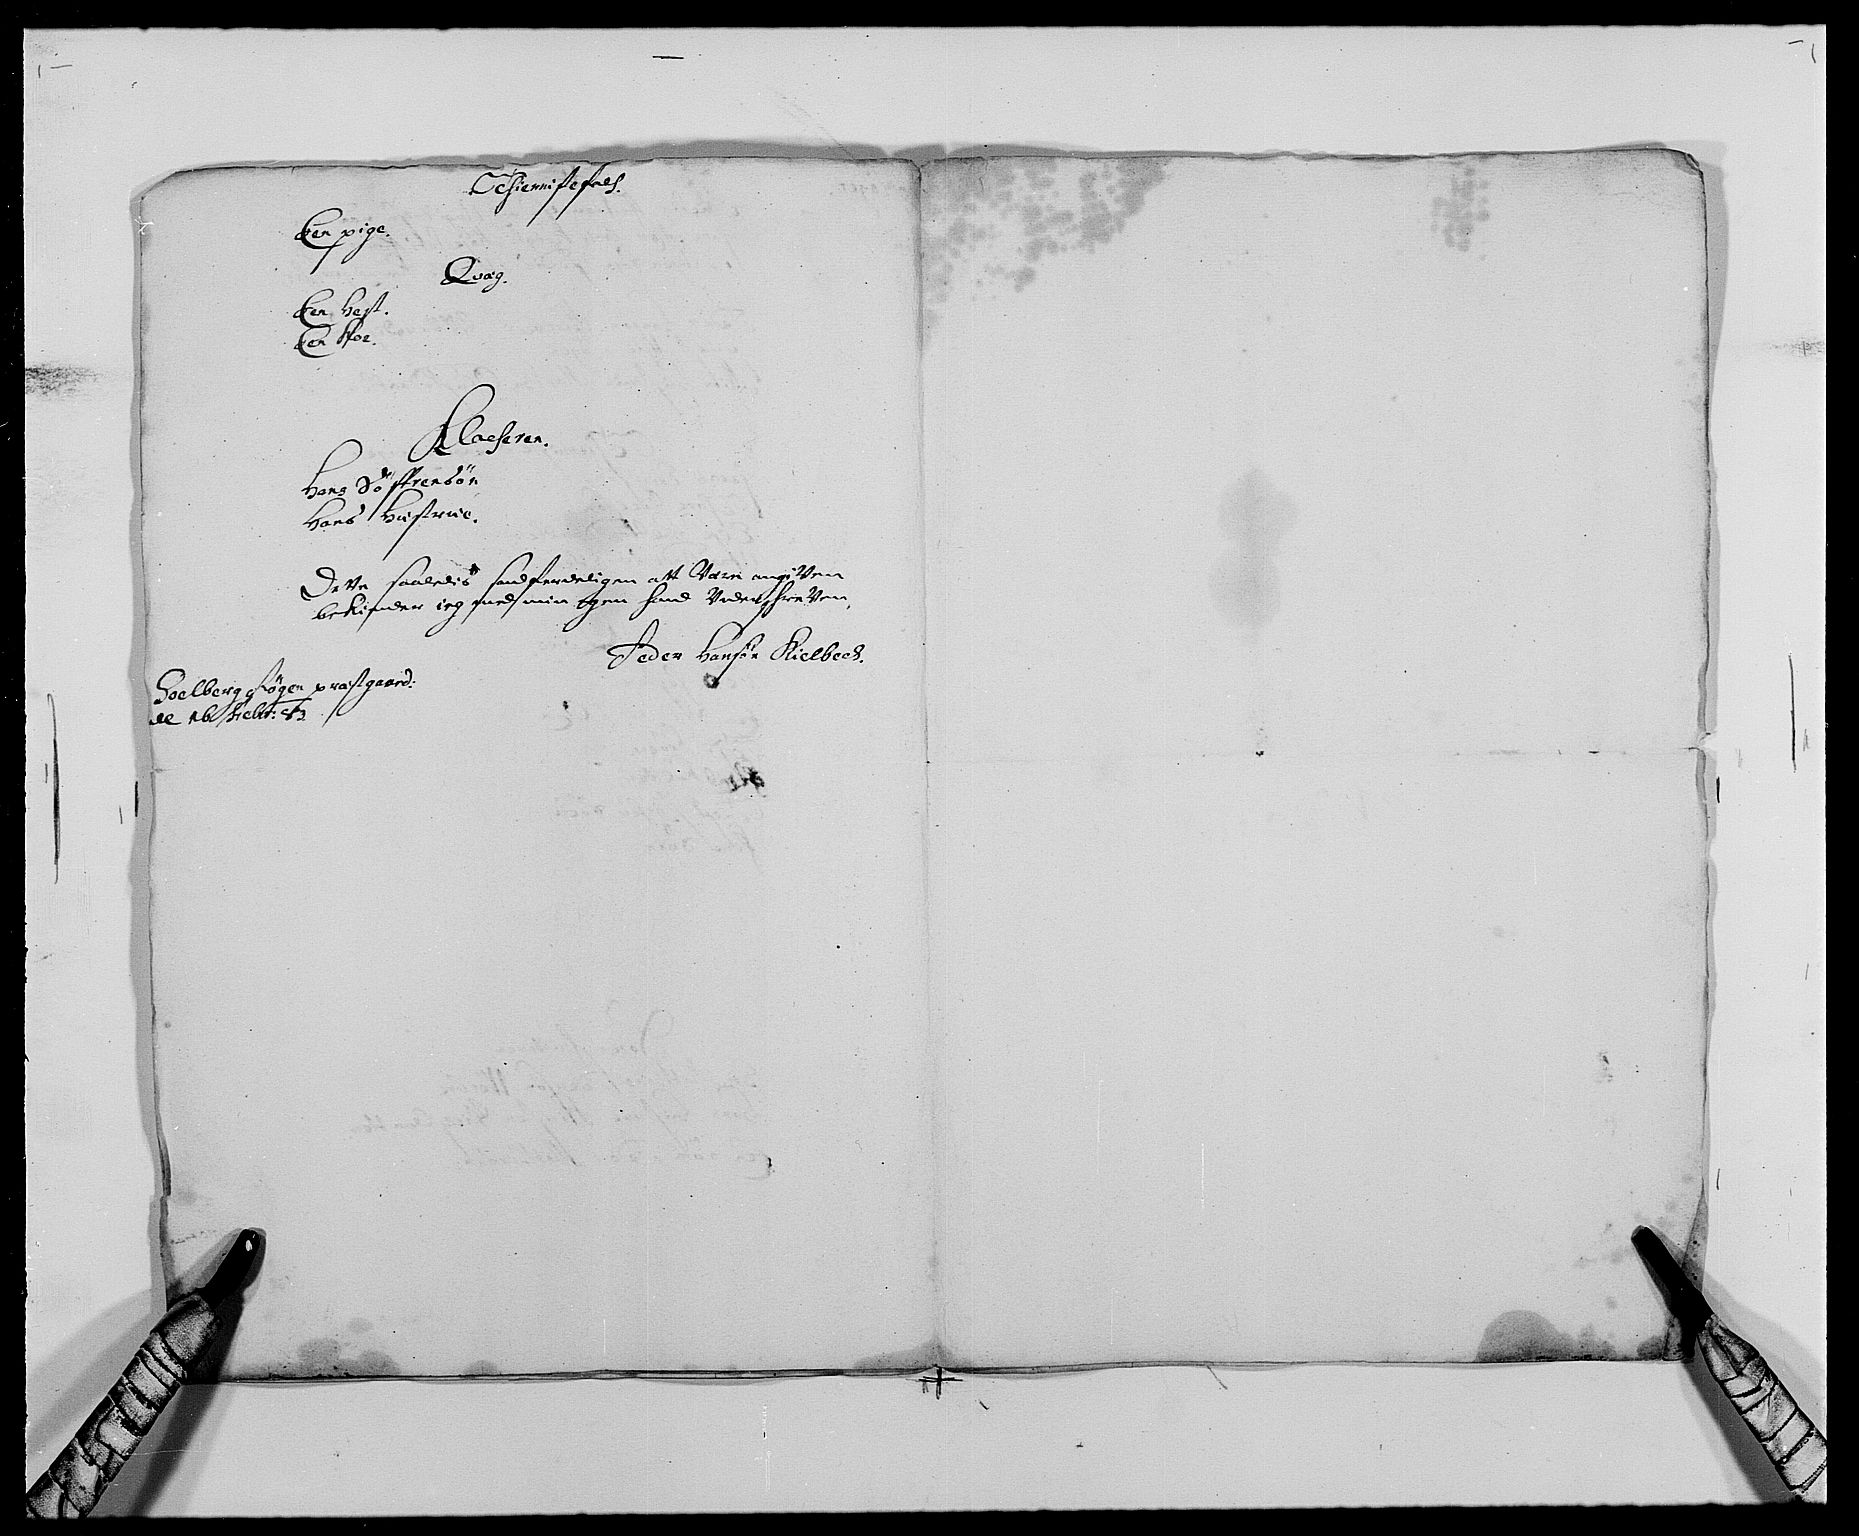 Tchienistefolch.
Een pige.
Qvæg.
Een Hest.
Een Koe.
Klocheren.
Hans Söffrensön
Hans Hustrue.
Dette saaledis sandferdeligen att Være angiVen
bekiender ieg med min egen haand VnderschreVen,
Peder Hansøn Kielbech.
Soelberg Søgen præstgaard:
de 16 Febr: 82